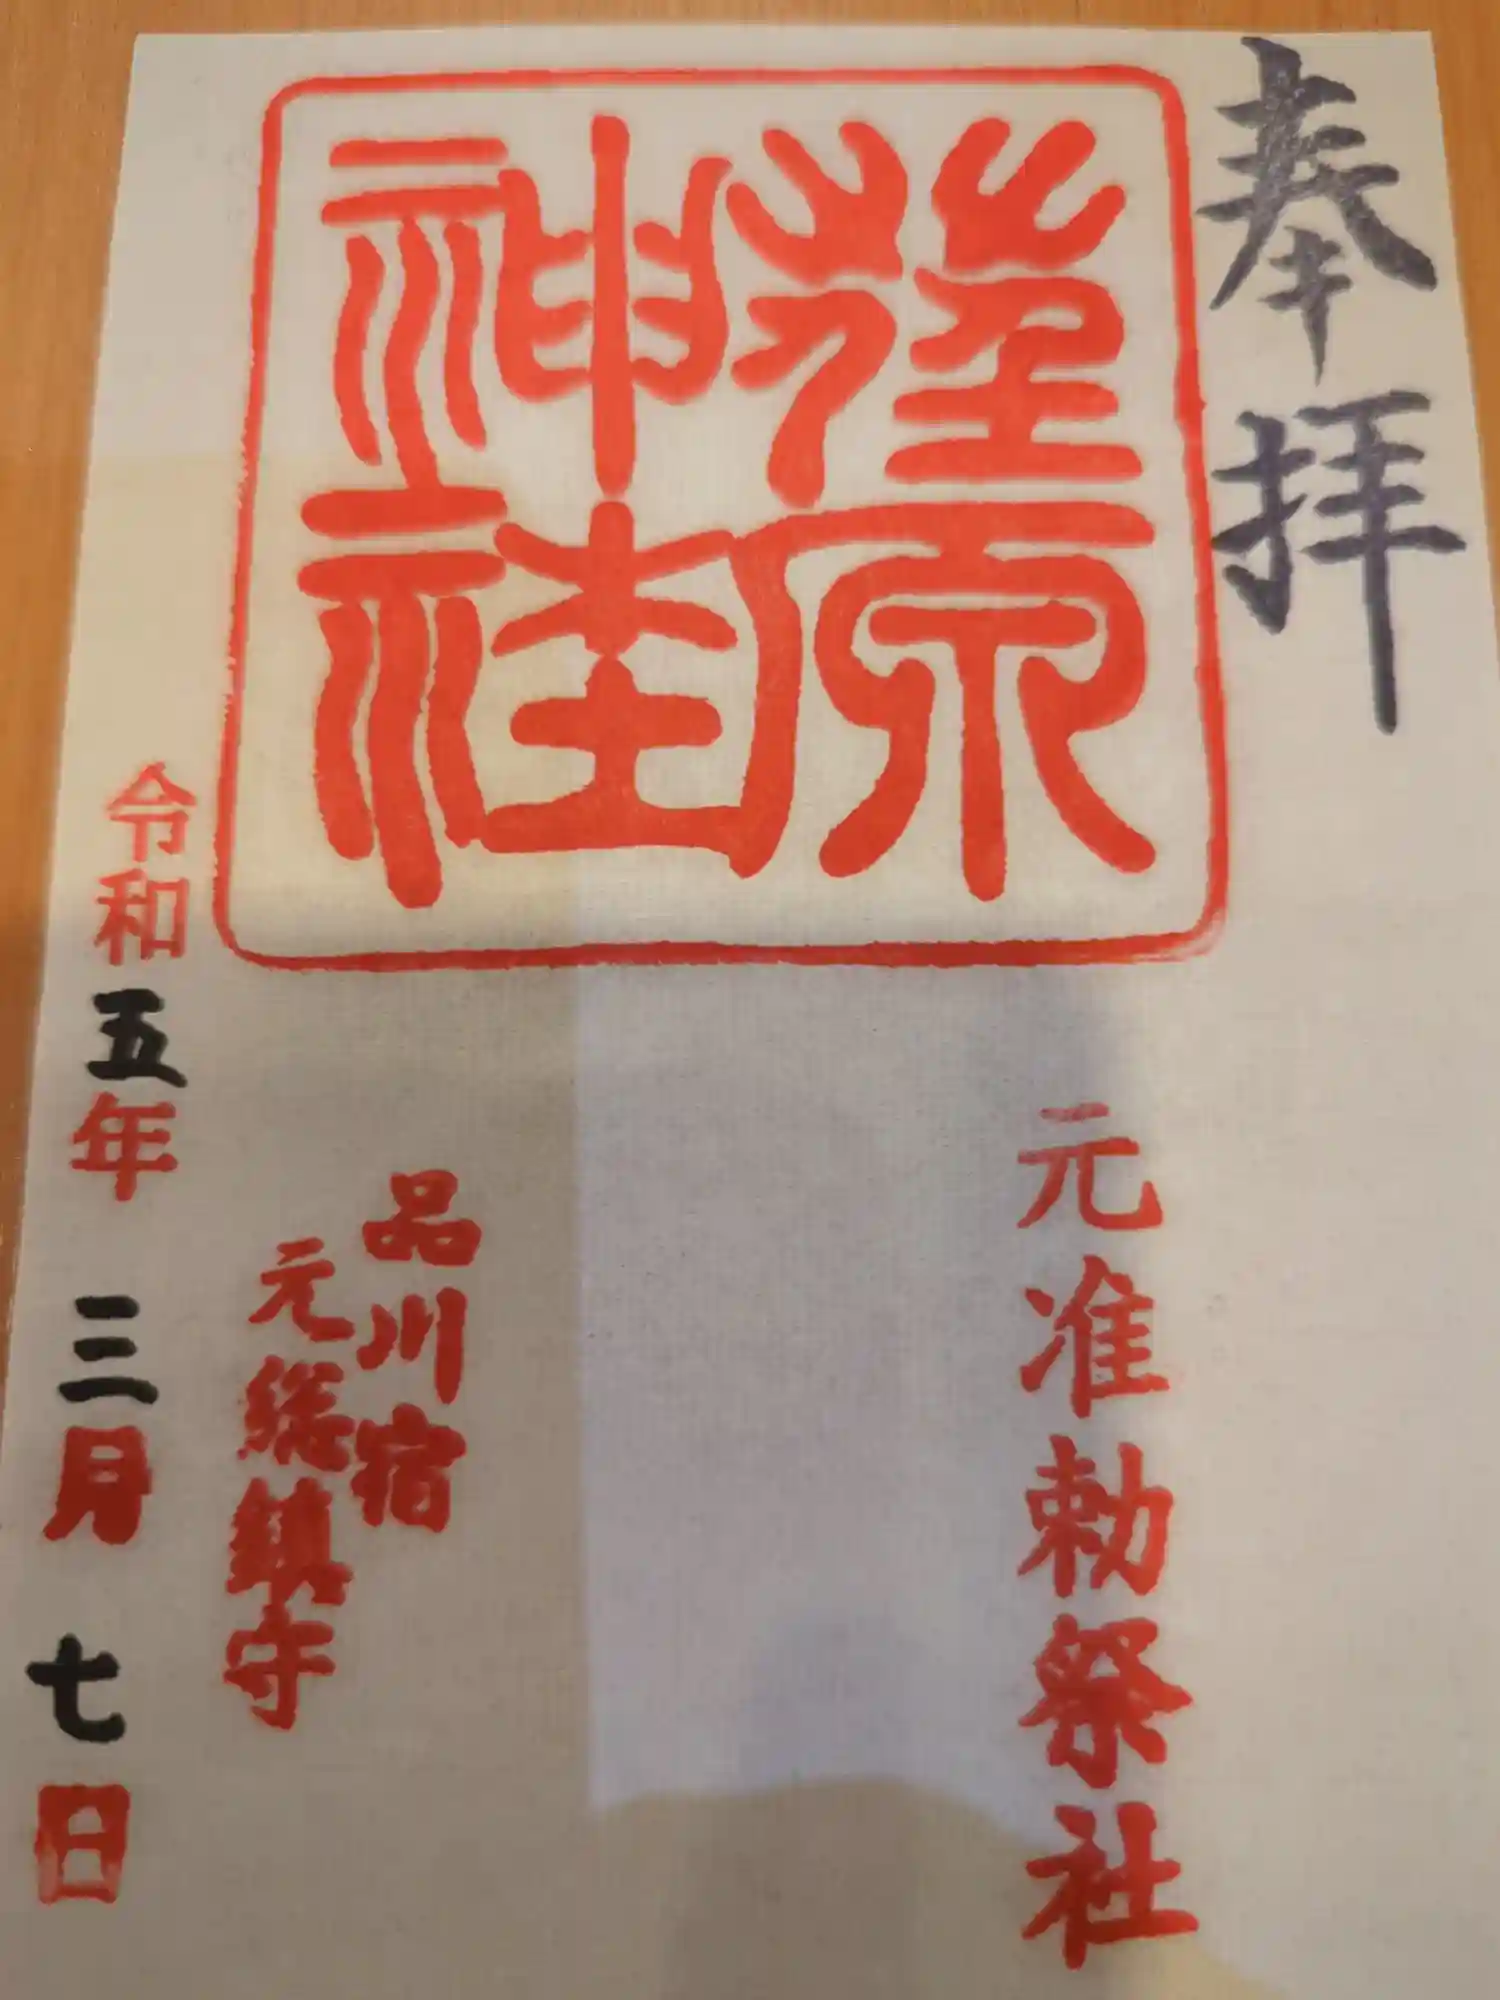 奉拝
荏原
神社
元准勅祭社
品川宿
元総鎮守
令和五年三月七日